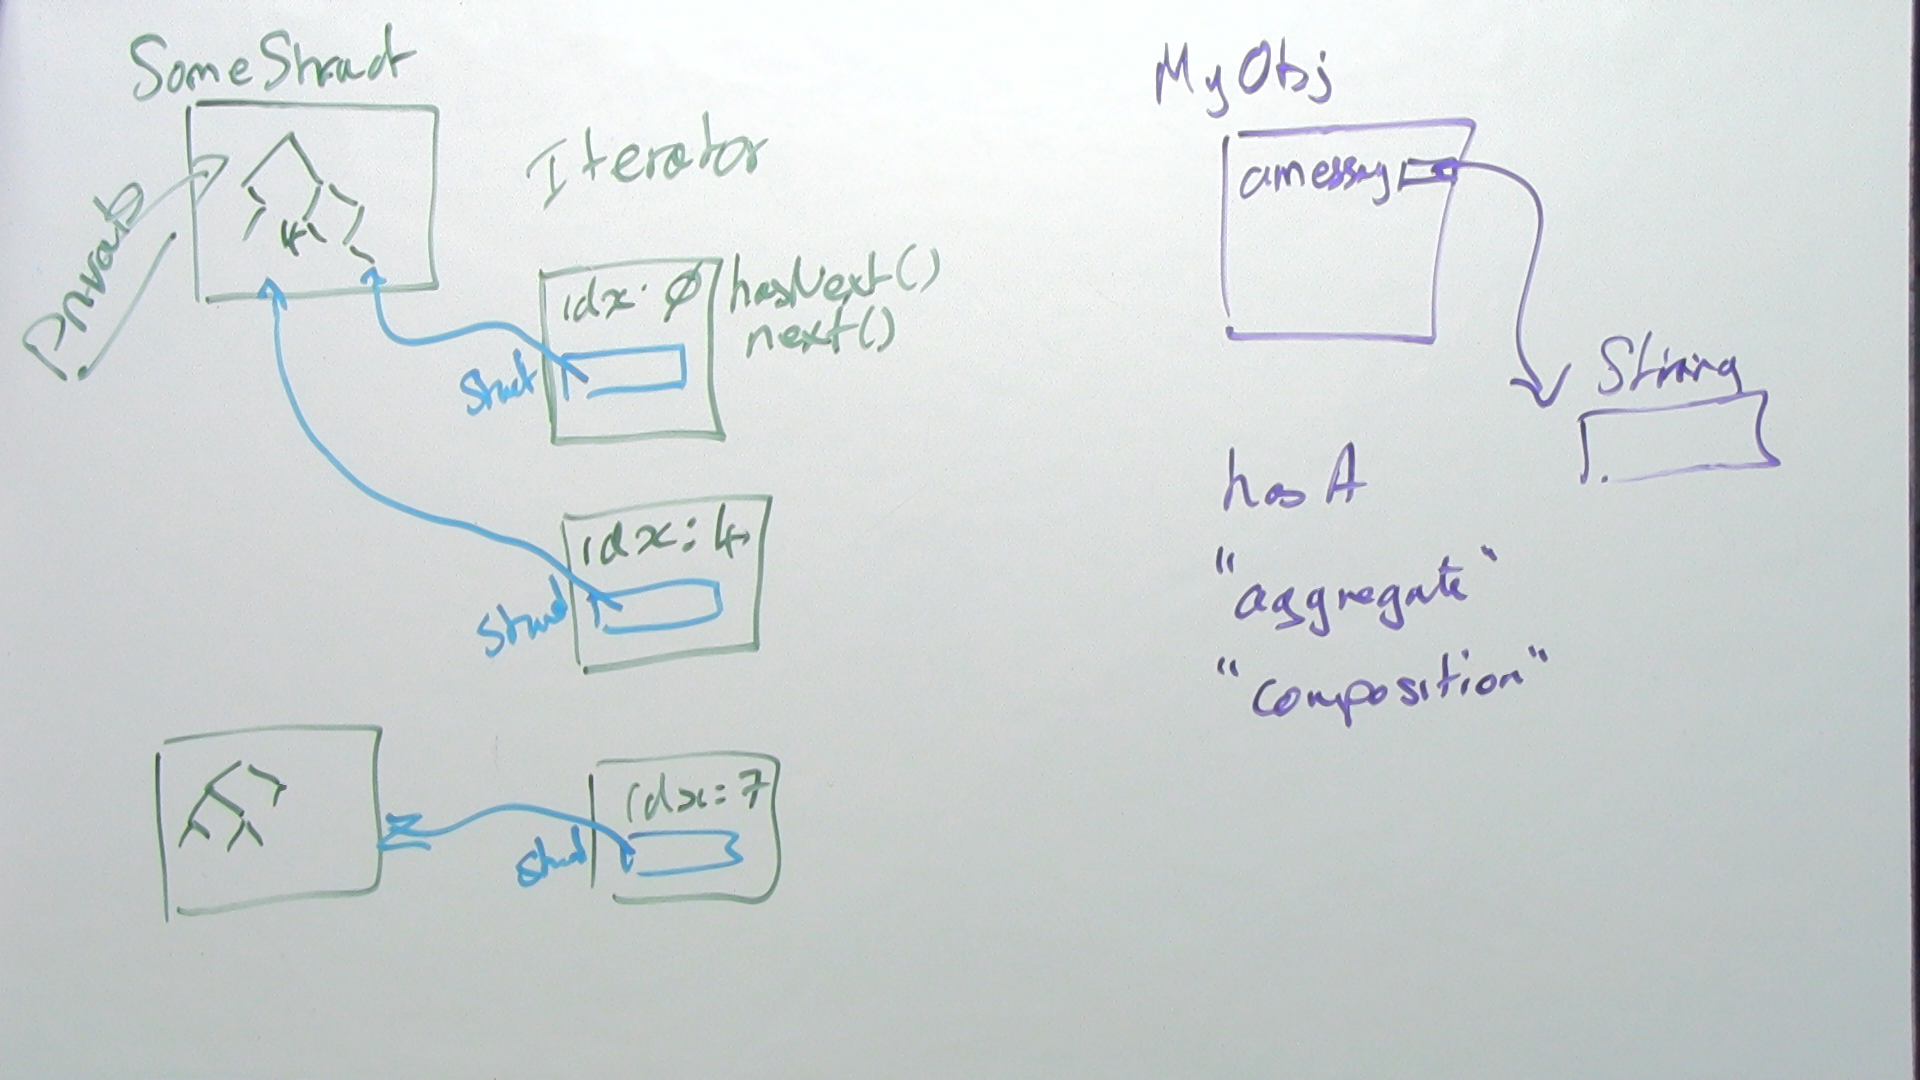 SomeStruct
Private
Iterator
idx: 0
hasNext()
next()
struct
idx: 4
struct
idx=7
struct
MyObj
amessag
String
has A
"aggregate"
"composition"